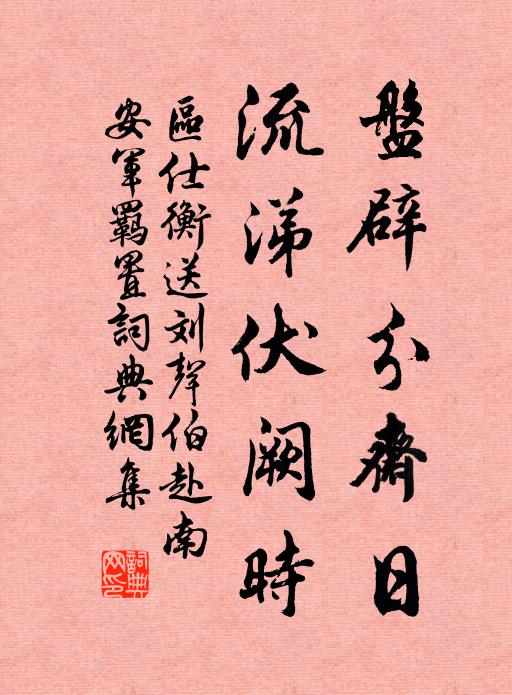 盤辟分齋日
流涕伏阙時
區仕衡送刘聲伯赴南
安軍羁置詞典網集
詞典
网印